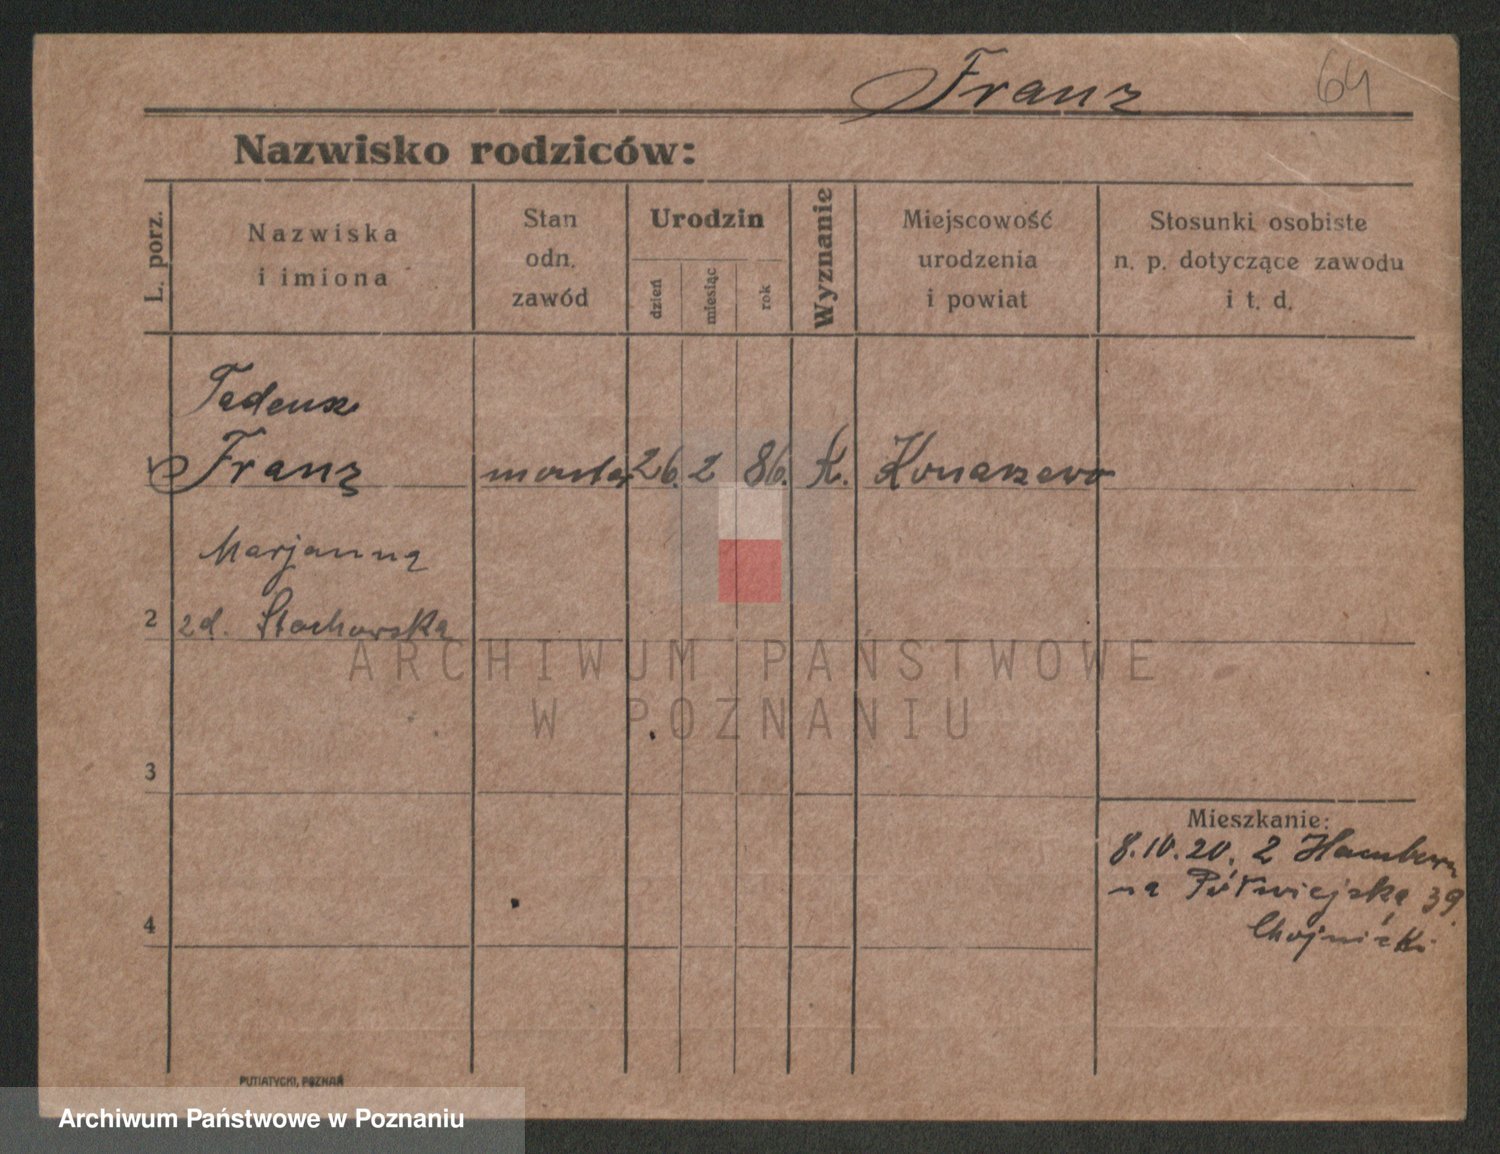 Franz 64
Nazwisko rodziców:
L. porz.
Nazwiska
i imiona
Stan
odn.
zawód
Urodzin
dzień
miesiąc
rok
Wyznanie
Miejscowość
urodzenia
i powiat
Stosunki osobiste
n. p. dotyczące zawodu
i t. d.
Tadeusz
1 Franz monter 26. 2 86. K. Konarzewo
Marjanna
2 zd. Stachowska
ARCHIWUM PAŃSTWOWE
W POZNANIU
3
Mieszkanie:
8.10.20. z Hamborn
na Półwiejska 39.
4
Chojnicki
PUTIATYCKI, POZNAŃ
Archiwum Państwowe w Poznaniu